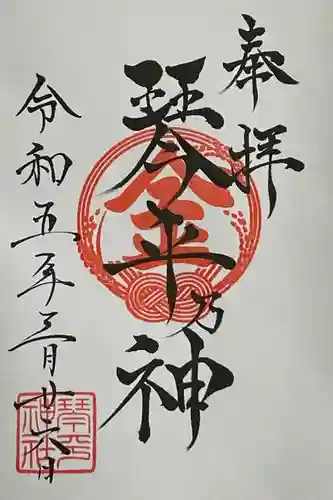 奉拝
琴平乃神
令和五年三月廿六日
金
琴平神社